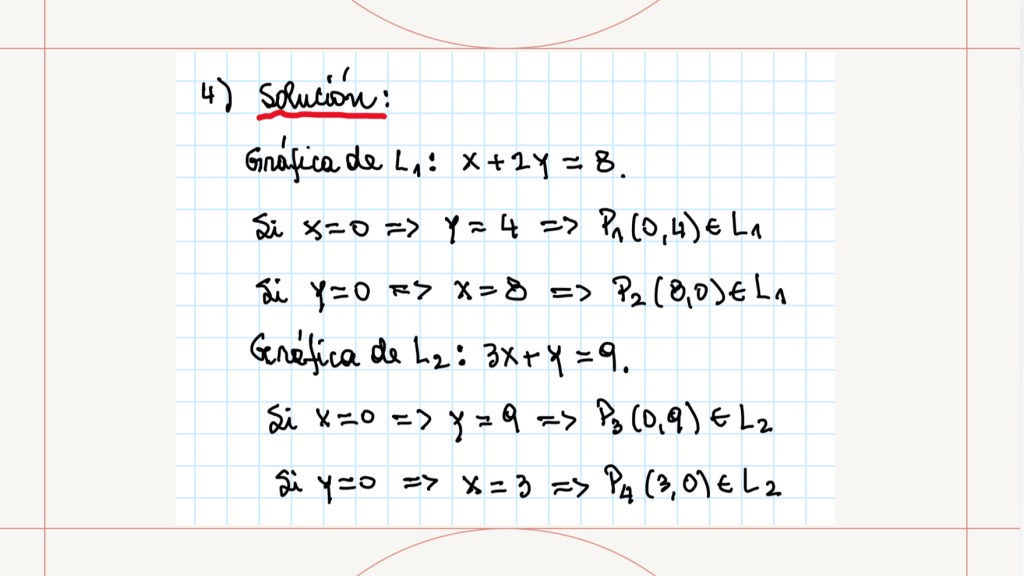 4) Solución:
Gráfica de L₁: x + 2y = 8.
Si x=0 => y = 4 => P₁(0,4) ∈ L₁
Si y=0 => x = 8 => P₂(8,0) ∈ L₁
Gráfica de L₂: 3x + y = 9.
Si x=0 => y = 9 => P₃(0,9) ∈ L₂
Si y=0 => x = 3 => P₄(3,0) ∈ L₂